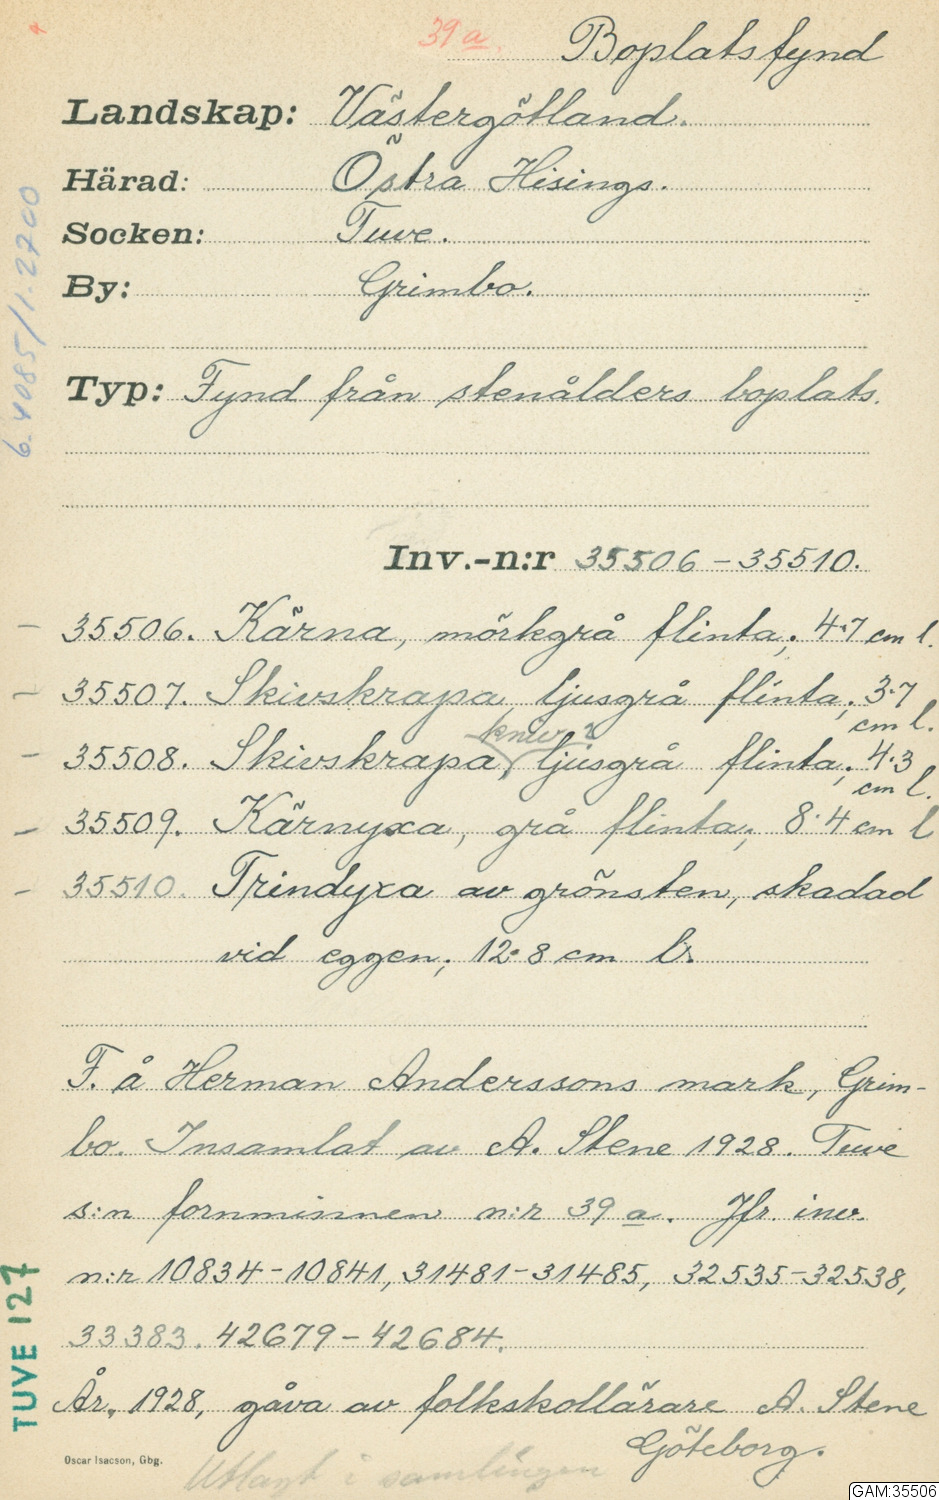 39 a. Boplatsfynd
Landskap: Västergötland.
Härad: Östra Hisings.
Socken: Tuve.
By: Grimbo.
6.4085/1-2700
Typ: Fynd från stenålders boplats.
Inv.-n:r 35506 – 35510.
– 35506. Kärna, mörkgrå flinta; 4.7 cm l.
– 35507. Skivskrapa, ljusgrå flinta; 3.7
cm l.
kniv?
– 35508. Skivskrapa, ljusgrå flinta; 4.3
cm l.
– 35509. Kärnyxa, grå flinta; 8.4 cm l
– 35510. Trindyxa av grönsten, skadad
vid eggen; 12.8 cm l.
F. å Herman Anderssons mark, Grim-
bo. Insamlat av A. Stene 1928. Tuve
s:n fornminnen n:r 39 a. Jfr. inv.
n:r 10834-10841, 31481-31485, 32535-32538,
33383. 42679-42684.
TUVE 127
År, 1928, gåva av folkskollärare A. Stene
Göteborg.
Oscar Isacson, Gbg.
Utlagt i samlingen
GAM:35506